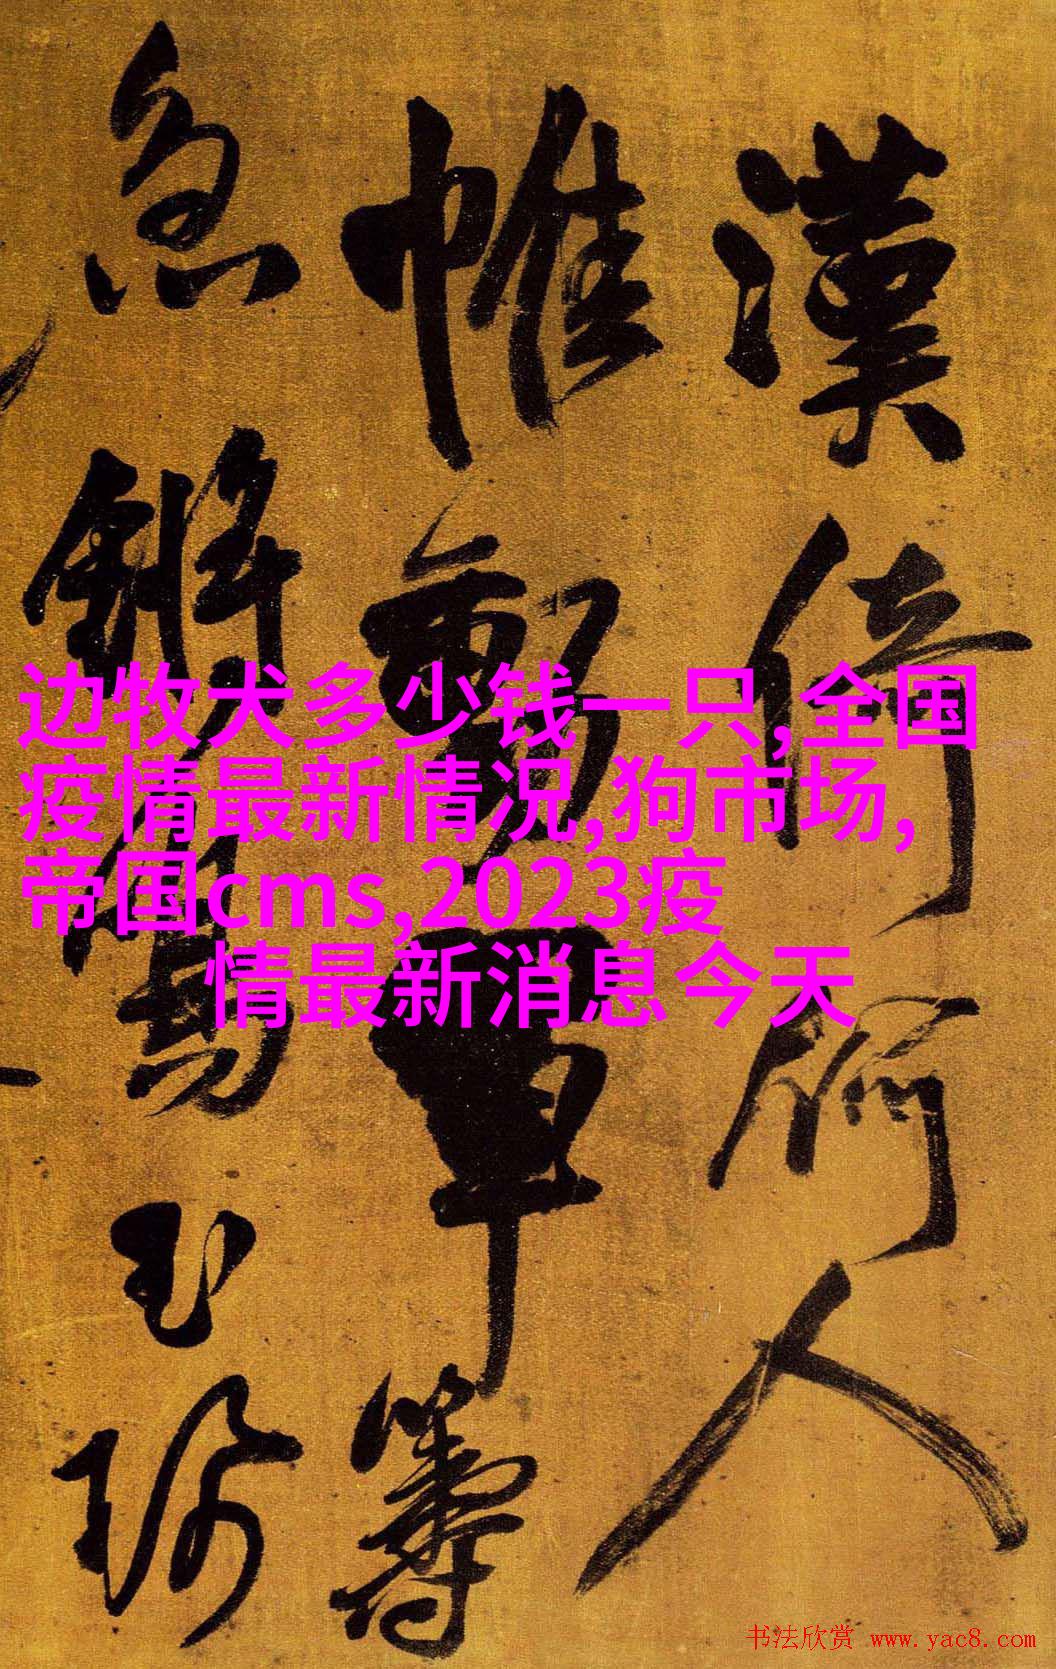 漢倚何人
帷軍籌
急鏘玉珂
边牧犬多少钱一只,全国
疫情最新情况,狗市场,
帝国cms,2023疫
情最新消息今天
书法欣赏 www.yac8.com